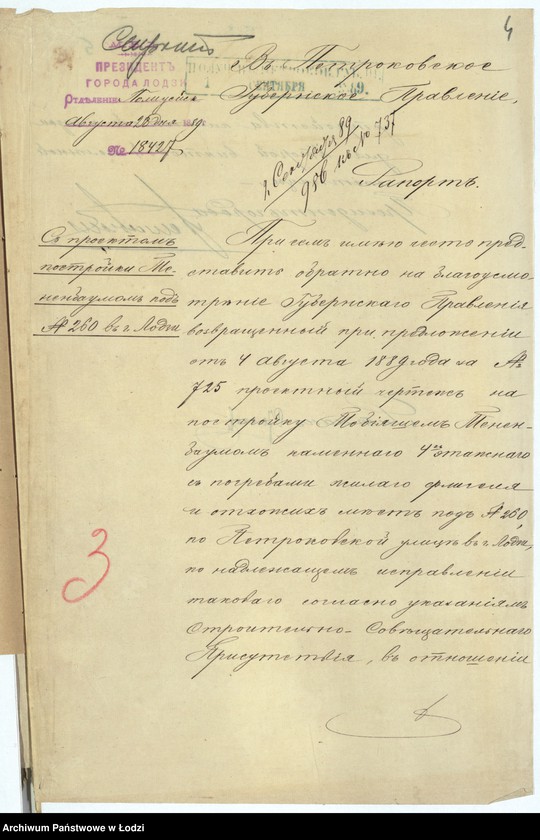 4
Въ Петроковское
Губернское Правленіе,
ПРЕЗИДЕНТЪ
ГОРОДА ЛОДЗИ
Августа 26 дня 1889 г.
№ 18427
1 Сентября 89
986 къ № 737
Рапортъ.
Съ проектомъ
постройки Те-
ненбаумомъ подъ
№ 260 въ г. Лодзи
При семъ имѣю честь пред-
ставить обратно на благоусмо-
трѣніе Губернскаго Правленія
возвращенный при предложеніи
отъ 4 Августа 1889 года за №
725 проектный чертежъ на
постройку Товіяшемъ Тенен-
баумомъ каменнаго 4хъ этажнаго
съ погребами жилаго флигеля
и отхожихъ мѣстъ подъ № 260,
по Петроковской улицѣ въ г. Лодзи,
по надлежащемъ исправленіи
таковаго согласно указаніямъ
Строительно-Совѣщательнаго
Присутствія, въ отношеніи
3
Archiwum Państwowe w Łodzi